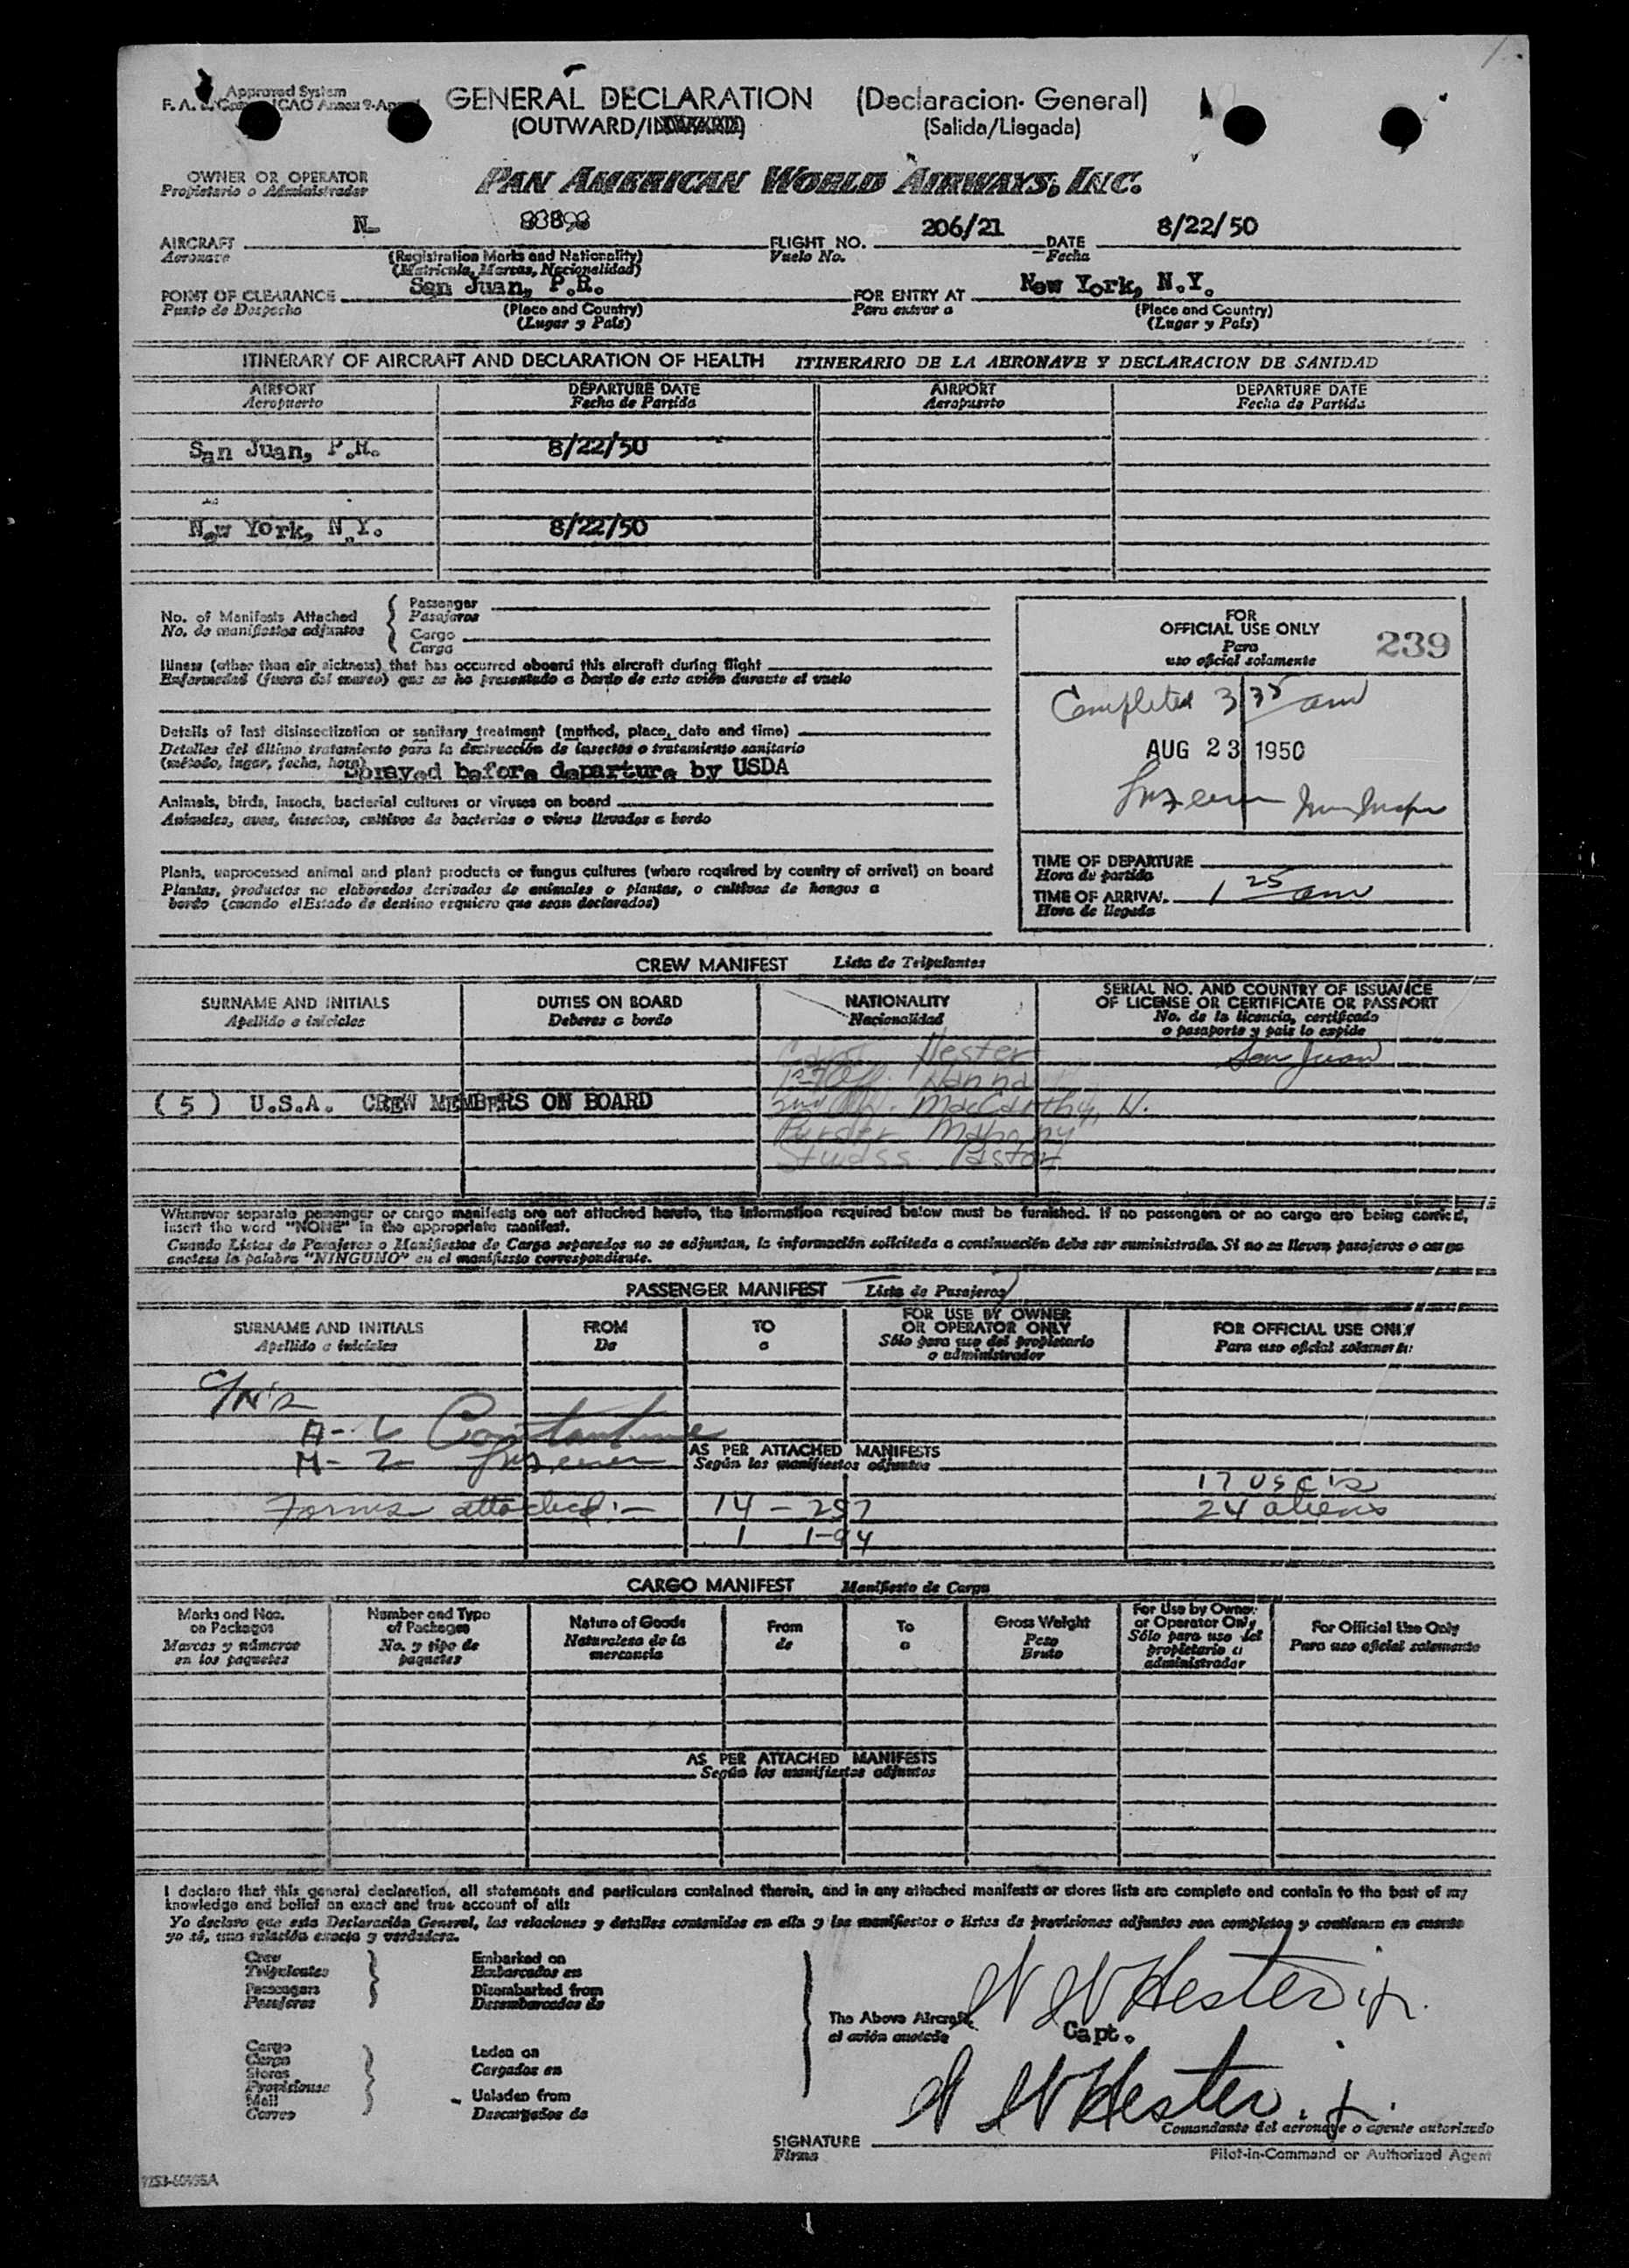 Approved System
GENERAL DECLARATION (Declaracion General)
(OUTWARD/INWARD) (Salida/Llegada)
OWNER OR OPERATOR
Propietario o Administrador
PAN AMERICAN WORLD AIRWAYS, INC.
AIRCRAFT N- FLIGHT NO. 206/21 DATE 8/22/50
Aeronave (Registration Marks and Nationality) Vuelo No. Fecha
(Matricula, Marcas, Nacionalidad)
POINT OF CLEARANCE San Juan, P.R. FOR ENTRY AT New York, N.Y.
Punto de Despacho (Place and Country) Para entrar a (Place and Country)
(Lugar y País) (Lugar y País)
ITINERARY OF AIRCRAFT AND DECLARATION OF HEALTH ITINERARIO DE LA AERONAVE Y DECLARACION DE SANIDAD
AIRPORT DEPARTURE DATE AIRPORT DEPARTURE DATE
Aeropuerto Fecha de Partida Aeropuerto Fecha de Partida
San Juan, P.R. 8/22/50
New York, N.Y. 8/22/50
No. of Manifests Attached { Passenger
No. de manifiestos adjuntos Pasajeros
Cargo
Carga
Illness (other than air sickness) that has occurred aboard this aircraft during flight
Enfermedad (fuera del mareo) que se ha presentado a bordo de este avión durante el vuelo
Details of last disinsectization or sanitary treatment (method, place, date and time)
Detalles del último tratamiento para la destrucción de insectos o tratamiento sanitario
(método, lugar, fecha, hora) Sprayed before departure by USDA
Animals, birds, insects, bacterial cultures or viruses on board
Animales, aves, insectos, cultivos de bacterias o virus llevados a bordo
Plants, unprocessed animal and plant products or fungus cultures (where required by country of arrival) on board
Plantas, productos no elaborados derivados de animales o plantas, o cultivos de hongos a
bordo (cuando el Estado de destino requiera que sean declarados)
FOR
OFFICIAL USE ONLY
Para
uso oficial solamente
239
Completed 3 35 am
AUG 23 1950
TIME OF DEPARTURE
Hora de partida
TIME OF ARRIVAL 1 25 am
Hora de llegada
CREW MANIFEST Lista de Tripulantes
SURNAME AND INITIALS DUTIES ON BOARD NATIONALITY SERIAL NO. AND COUNTRY OF ISSUANCE
Apellido e iniciales Deberes a bordo Nacionalidad OF LICENSE OR CERTIFICATE OR PASSPORT
No. de la licencia, certificado
o pasaporte y país lo expide
Capt. Hester San Juan
1st Off. Hanna
( 5 ) U.S.A. CREW MEMBERS ON BOARD 2nd Off. MacCarthy, N.
Purser Mahony
Stwdss Pastor
Whenever separate passenger or cargo manifests are not attached hereto, the information required below must be furnished. If no passengers or no cargo are being carried,
insert the word "NONE" in the appropriate manifest.
Cuando Listas de Pasajeros o Manifiestos de Carga separados no se adjuntan, la información solicitada a continuación debe ser suministrada. Si no se llevan pasajeros o carga
anótese la palabra "NINGUNO" en el manifiesto correspondiente.
PASSENGER MANIFEST Lista de Pasajeros
SURNAME AND INITIALS FROM TO FOR USE BY OWNER OR OPERATOR ONLY FOR OFFICIAL USE ONLY
Apellido e iniciales De a Sólo para uso del propietario o administrador Para uso oficial solamente
AS PER ATTACHED MANIFESTS
Según los manifiestos adjuntos
17 USC's
Forms attached:- 14 - 257 24 aliens
1 I-94
CARGO MANIFEST Manifiesto de Carga
Marks and Nos. on Packages Number and Type of Packages Nature of Goods From To Gross Weight For Use by Owner or Operator Only For Official Use Only
Marcas y números en los paquetes No. y tipo de paquetes Naturaleza de la mercancia de a Peso Bruto Sólo para uso del propietario o administrador Para uso oficial solamente
AS PER ATTACHED MANIFESTS
Según los manifiestos adjuntos
I declare that this general declaration, all statements and particulars contained therein, and in any attached manifests or stores lists are complete and contain to the best of my
knowledge and belief an exact and true account of all:
Yo declaro que esta Declaración General, las relaciones y detalles contenidos en ella y los manifiestos o listas de provisiones adjuntos son completos y contienen en cuanto
yo sé, una relación exacta y verdadera.
Crew Embarked on
Tripulantes Embarcados en
Passengers Disembarked from
Pasajeros Desembarcados de
Cargo Laden on
Carga Cargados en
Stores
Provisiones
Mail Unladen from
Correo Descargados de
The Above Aircraft
el avión anotado
Hester Jr.
Capt.
Hester Jr.
SIGNATURE Comandante del aeronave o agente autorizado
Firma Pilot-in-Command or Authorized Agent